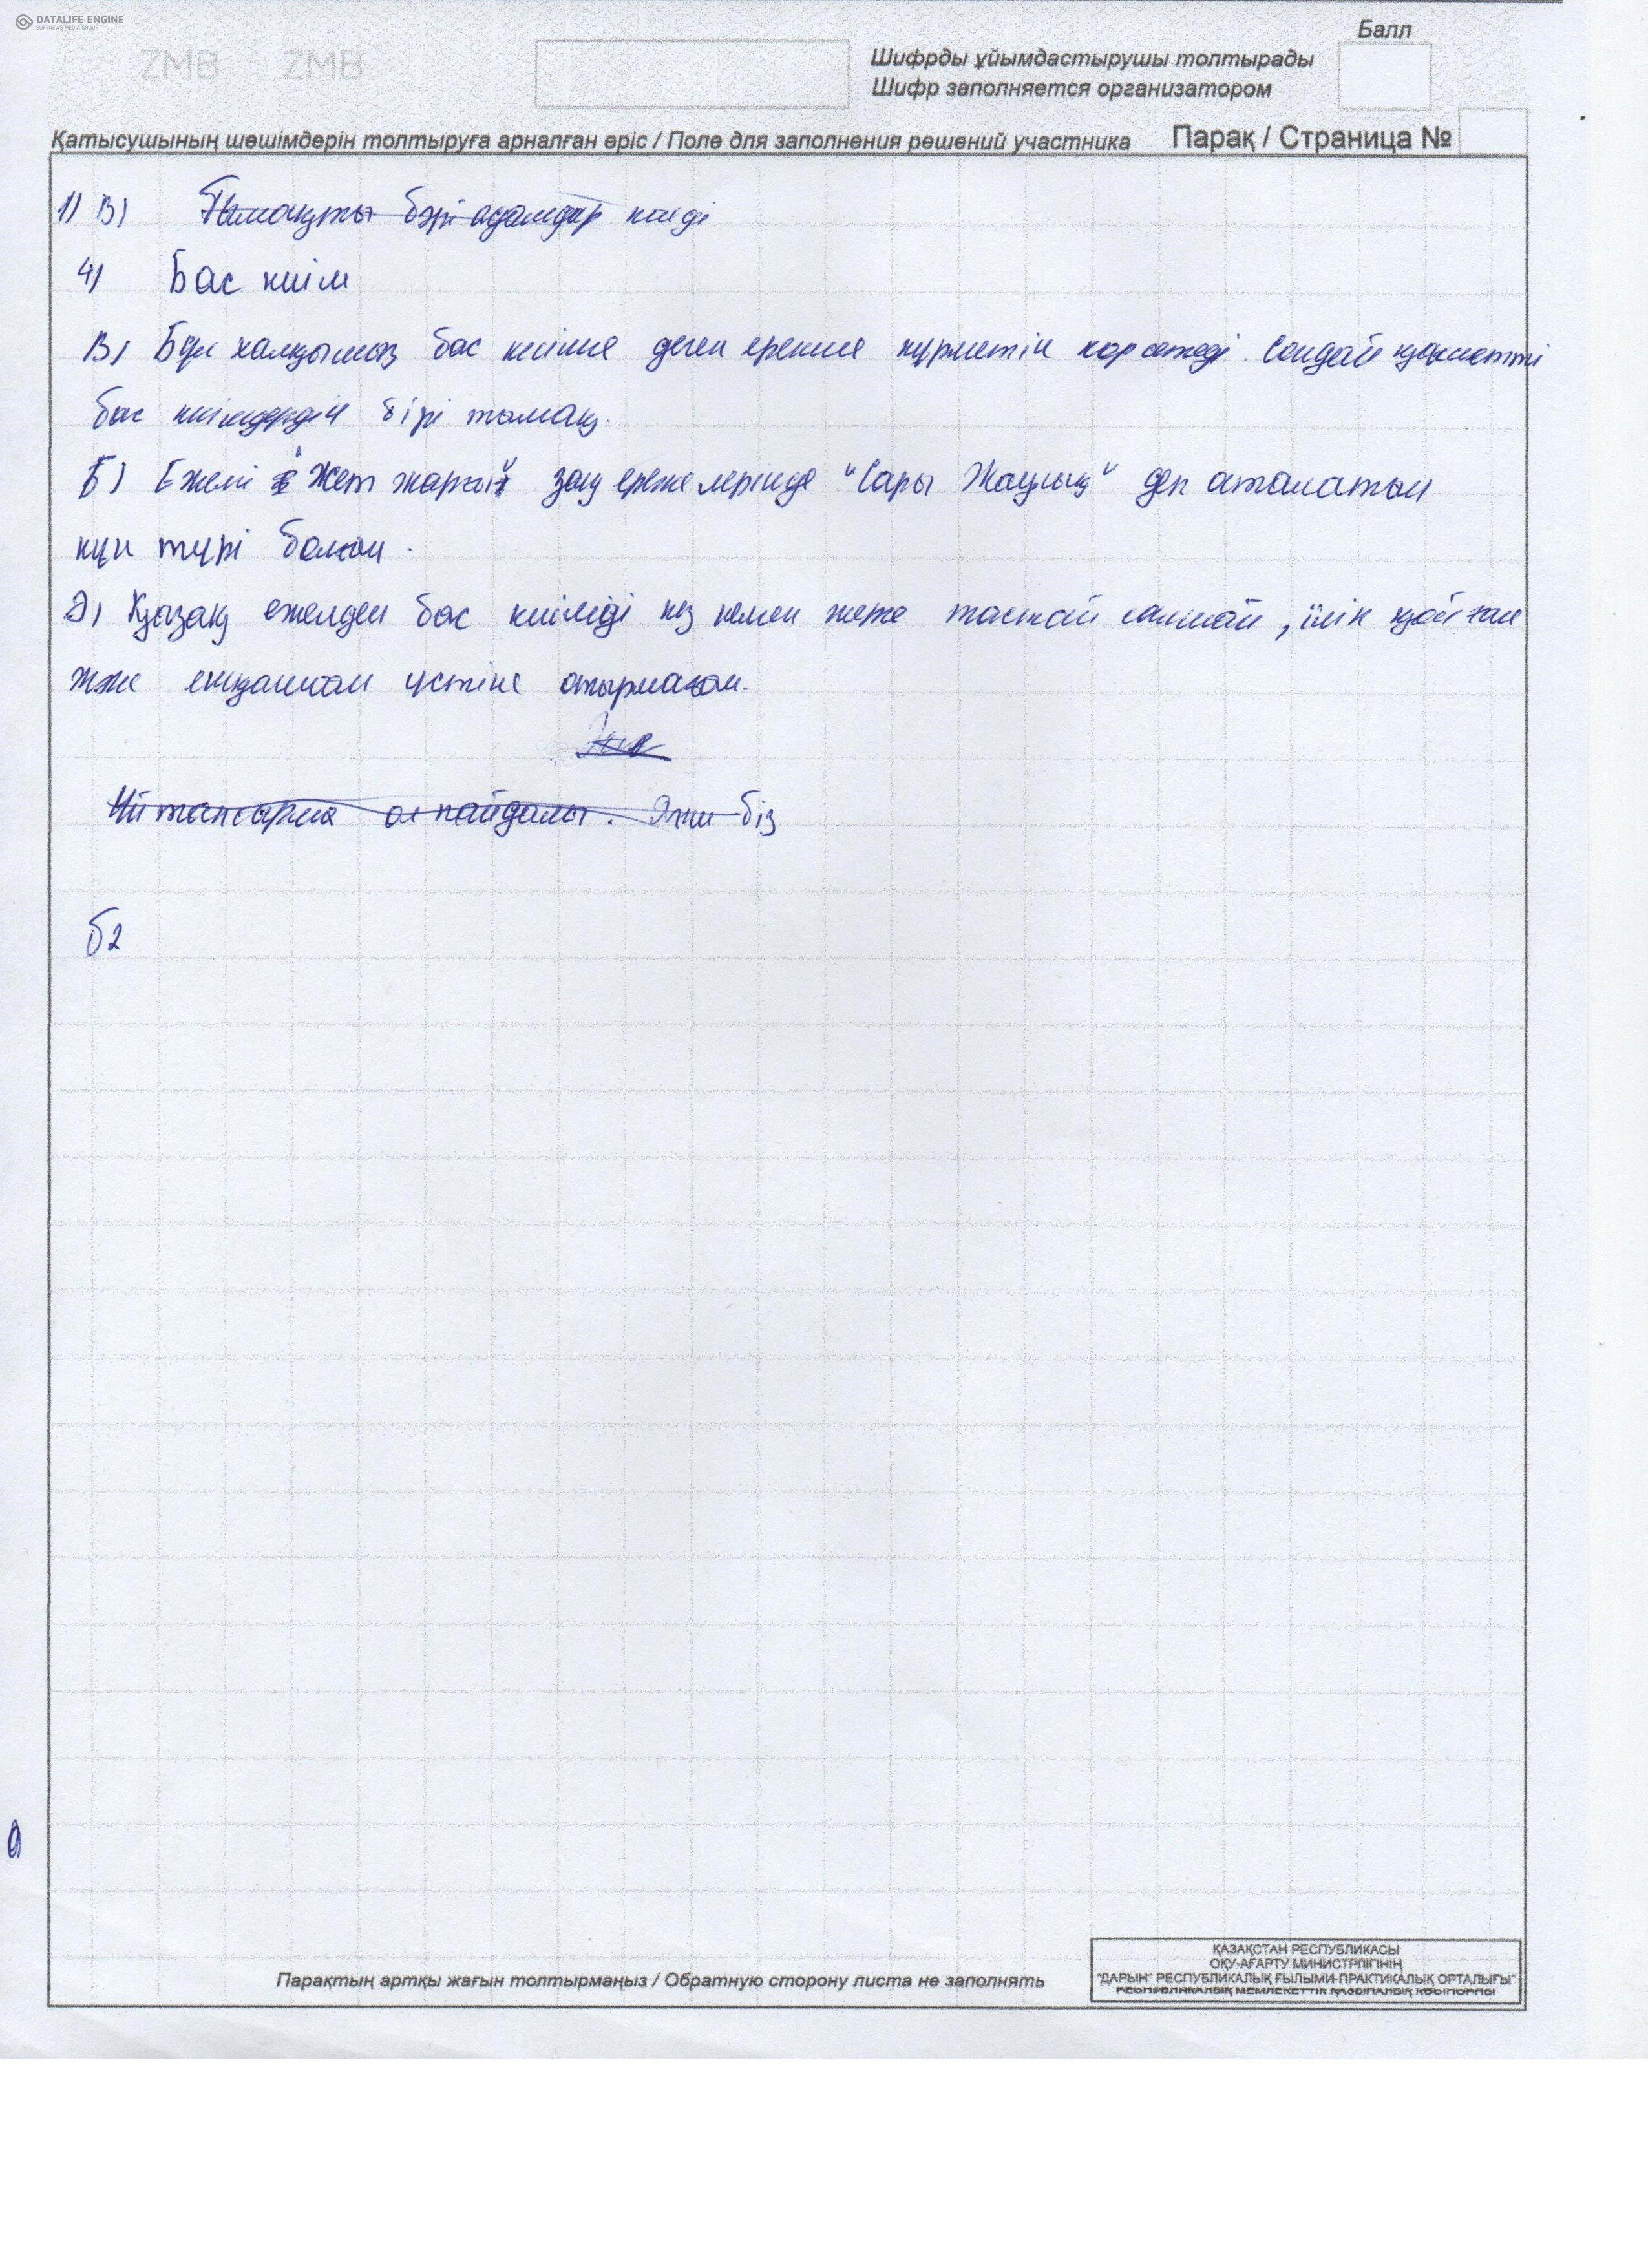 DATALIFE ENGINE
SOFTNEWS MEDIA GROUP
ZMB ZMB
Балл
Шифрды ұйымдастырушы толтырады
Шифр заполняется организатором
Қатысушының шешімдерін толтыруға арналған өріс / Поле для заполнения решений участника Парақ / Страница №
1) В) Тымақты бәрі адамдар киеді
4) Бас киім
В) Бұл халқымыз бас киімге деген ерекше құрметін көрсетеді. Сондай қасиетті
бас киімдердің бірі тымақ.
Б) Ежелгі "Жеті жарғы" заң ережелерінде "Сары Жаулық" деп аталатын
құн түрі болған.
Ә) Қазақ ежелден бас киімді кез келген жерге тастай салмай, іліп қойған
және ешқашан үстіне отырмаған.
Үй тапсырма ол пайдалы. Яғни біз
б2
Парақтың артқы жағын толтырмаңыз / Обратную сторону листа не заполнять
ҚАЗАҚСТАН РЕСПУБЛИКАСЫ
ОҚУ-АҒАРТУ МИНИСТРЛІГІНІҢ
"ДАРЫН" РЕСПУБЛИКАЛЫҚ ҒЫЛЫМИ-ПРАКТИКАЛЫҚ ОРТАЛЫҒЫ"
РЕСПУБЛИКАЛЫҚ МЕМЛЕКЕТТІК ҚАЗЫНАЛЫҚ КӘСІПОРНЫ